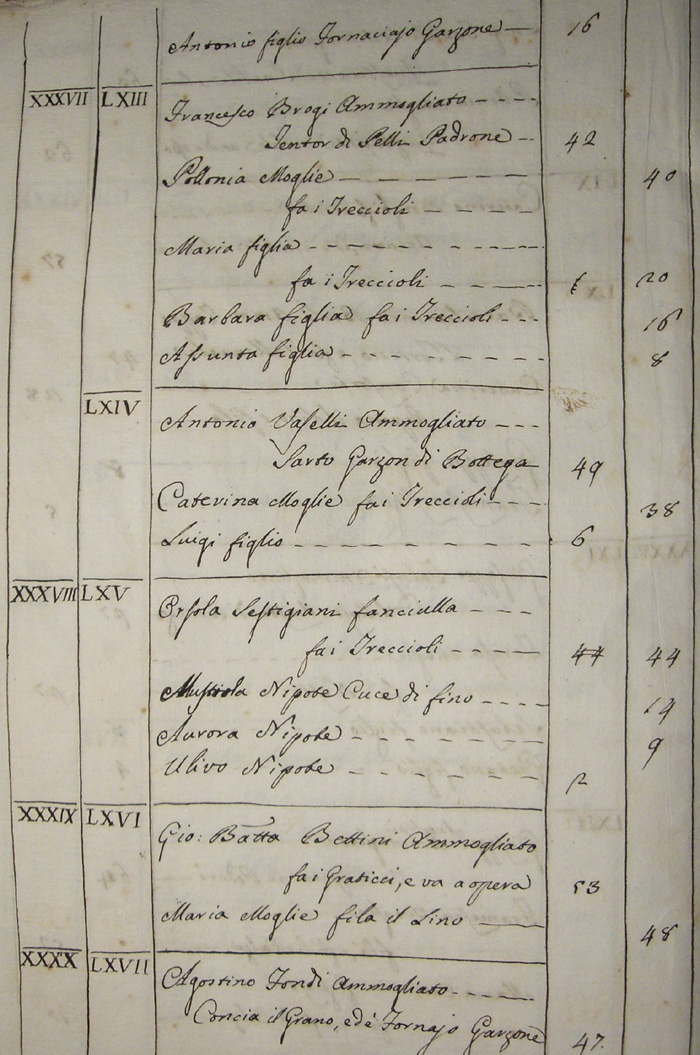 Antonio figlio Fornaciajo Garzone — 16
XXXVII LXIII Francesco Brogi Ammogliato - - - -
Tentor di Pelli Padrone - - 42
Pollonia Moglie — — — — — 40
fa i Treccioli — — — —
Maria figlia - - - - - - - -
fa i Treccioli - - - — 20
Barbara figlia fa i Treccioli - - - 16
Assunta figlia - - - - - - 8
LXIV Antonio Vaselli Ammogliato - - -
Sarto Garzon di Bottega 49
Caterina Moglie fa i Treccioli - - - 38
Luigi figlio - - - - - - - 6
XXXVIII LXV Orsola Sestigiani fanciulla - - - -
fa i Treccioli - - - - 44 44
Mustiola Nipote Cuce di fino - - - - 14
Aurora Nipote - - - - - - 9
Ulivo Nipote - - - - - - 2
XXXIX LXVI Gio: Batta Bettini Ammogliato
fa i Graticci, e va a opera 53
Maria Moglie fila il Lino — 48
XXXX LXVII Agostino Fondi Ammogliato - - - -
Concia il Grano, ed è Fornajo Garzone 47.